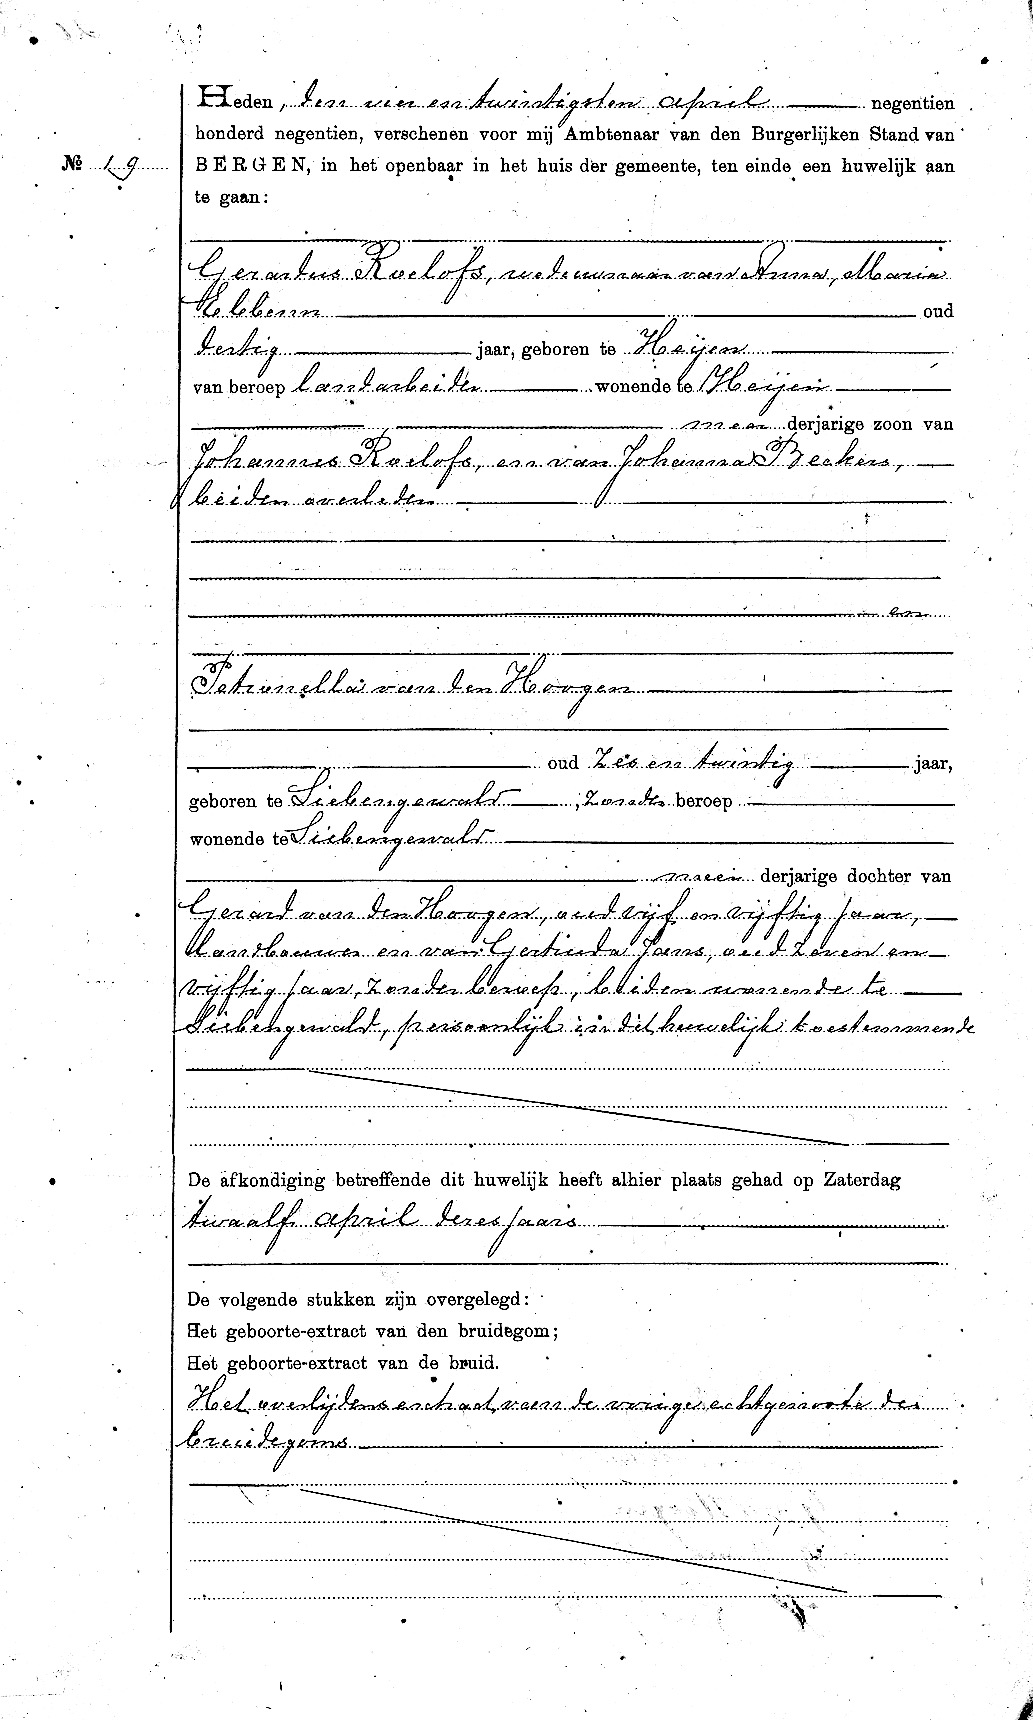 Heden, den vier en twintigsten april negentien
honderd negentien, verschenen voor mij Ambtenaar van den Burgerlijken Stand van
№ 19 BERGEN, in het openbaar in het huis der gemeente, ten einde een huwelijk aan
te gaan:
Gerardus Roelofs, weduwnaar van Anna, Maria
oud
dertig jaar, geboren te Heijen
van beroep landarbeider wonende te Heijen
meer derjarige zoon van
Johannes Roelofs, en van Johanna Beckers,
beiden overleden
en
Petronella van den Hoogen
oud zes en twintig jaar,
geboren te Siebengewald, zonder beroep
wonende te Siebengewald
meer derjarige dochter van
Gerard van den Hoogen, oud vijf en vijftig jaar,
landbouwer en van Gertruda Jans, oud zeven en
vijftig jaar, zonder beroep, beiden wonende te
Siebengewald, persoonlijk in dit huwelijk toestemmende
De afkondiging betreffende dit huwelijk heeft alhier plaats gehad op Zaterdag
twaalf april dezes jaars
De volgende stukken zijn overgelegd:
Het geboorte-extract van den bruidegom;
Het geboorte-extract van de bruid.
Het overlijdensextract van de vorige echtgenoote des
bruidegoms